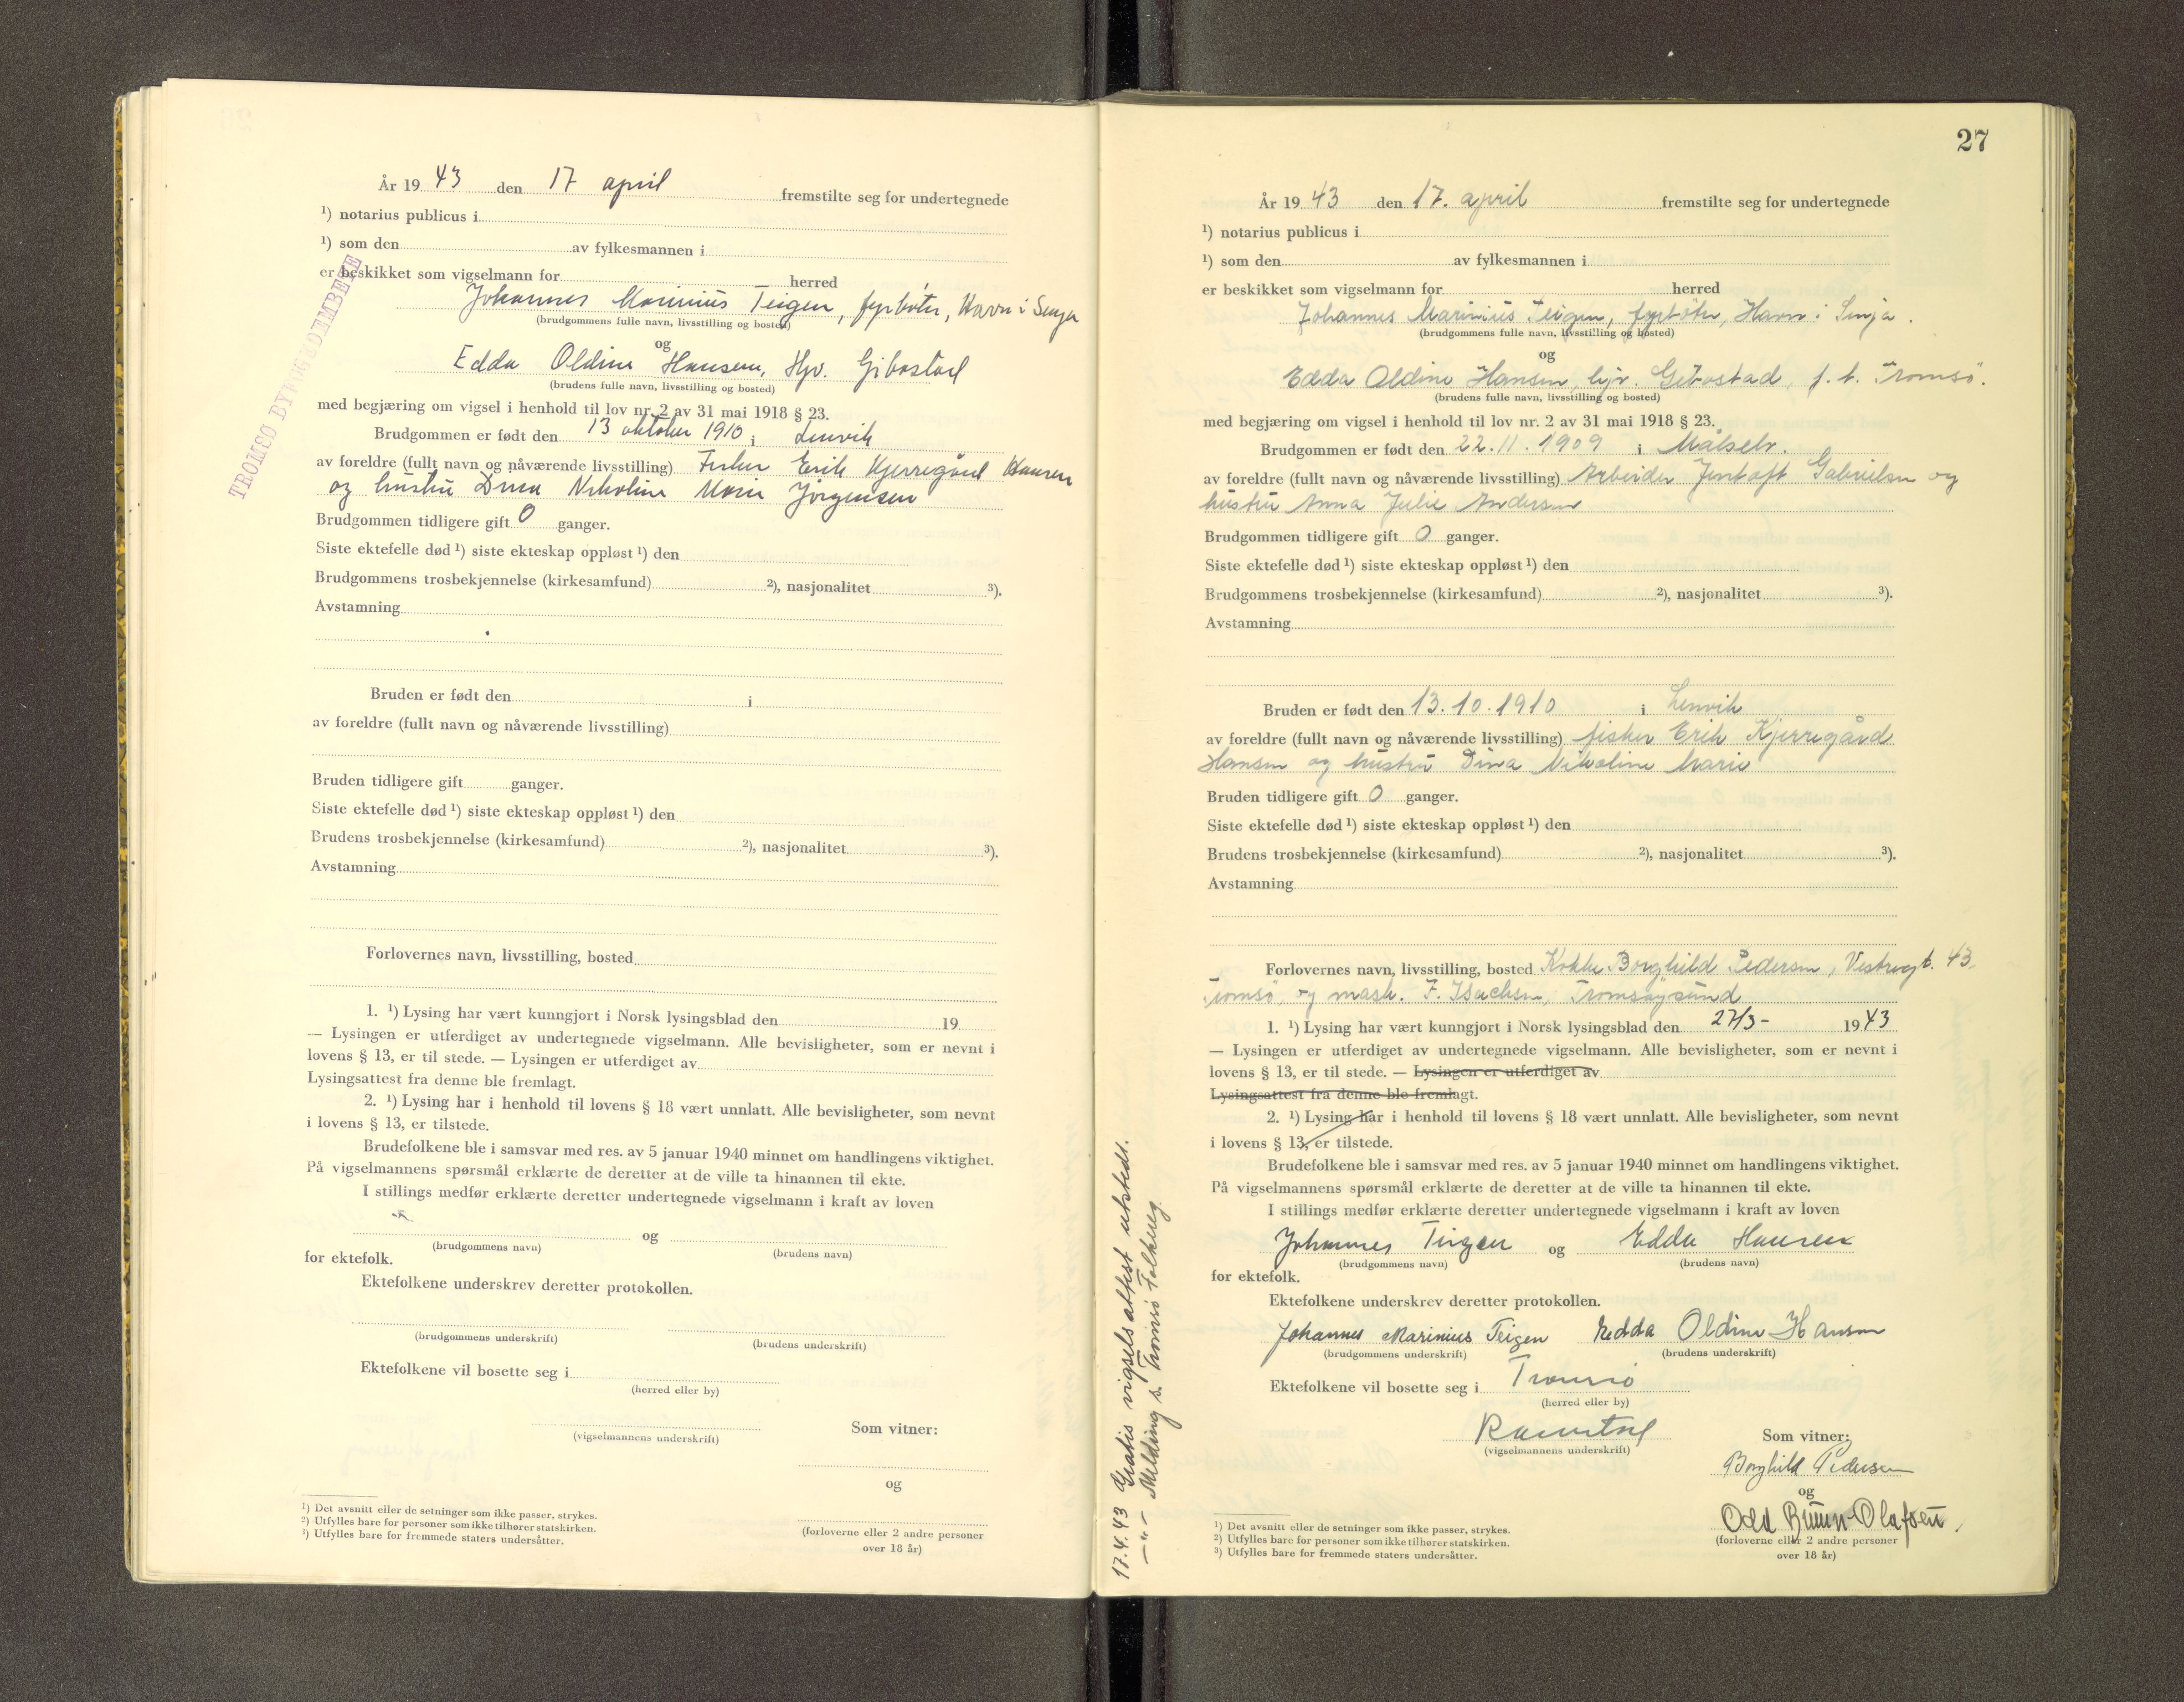 År 19 43 den 17 april fremstilte seg for undertegnede
¹) notarius publicus i
¹) som den av fylkesmannen i
er beskikket som vigselmann for herred
TROMSØ BYFOGDEMBETE
Johannes Marinius Teigen, fyrbøter, Havn i Senja
(brudgommens fulle navn, livsstilling og bosted)
og
Edda Oldine Hansen, Hjv. Gibostad
(brudens fulle navn, livsstilling og bosted)
med begjæring om vigsel i henhold til lov nr. 2 av 31 mai 1918 § 23.
Brudgommen er født den 13 oktober 1910 i Lenvik
av foreldre (fullt navn og nåværende livsstilling) Fisker Erik Kjerregård Hansen
og hustru Dina Nikoline Marie Jörgensen
Brudgommen tidligere gift 0 ganger.
Siste ektefelle død ¹) siste ekteskap oppløst ¹) den
Brudgommens trosbekjennelse (kirkesamfund) ²), nasjonalitet ³).
Avstamning
Bruden er født den i
av foreldre (fullt navn og nåværende livsstilling)
Bruden tidligere gift ganger.
Siste ektefelle død ¹) siste ekteskap oppløst ¹) den
Brudens trosbekjennelse (kirkesamfund) ²), nasjonalitet ³).
Avstamning
Forlovernes navn, livsstilling, bosted
1. ¹) Lysing har vært kunngjort i Norsk lysingsblad den 19
— Lysingen er utferdiget av undertegnede vigselmann. Alle bevisligheter, som er nevnt i
lovens § 13, er til stede. — Lysingen er utferdiget av
Lysingsattest fra denne ble fremlagt.
2. ¹) Lysing har i henhold til lovens § 18 vært unnlatt. Alle bevisligheter, som nevnt
i lovens § 13, er tilstede.
Brudefolkene ble i samsvar med res. av 5 januar 1940 minnet om handlingens viktighet.
På vigselmannens spørsmål erklærte de deretter at de ville ta hinannen til ekte.
I stillings medfør erklærte deretter undertegnede vigselmann i kraft av loven
og
(brudgommens navn) (brudens navn)
for ektefolk.
Ektefolkene underskrev deretter protokollen.
(brudgommens underskrift) (brudens underskrift)
Ektefolkene vil bosette seg i
(herred eller by)
(vigselmannens underskrift)
Som vitner:
og
(forloverne eller 2 andre personer
over 18 år)
¹) Det avsnitt eller de setninger som ikke passer, strykes.
²) Utfylles bare for personer som ikke tilhører statskirken.
³) Utfylles bare for fremmede staters undersåtter.
27
År 19 43 den 17. april fremstilte seg for undertegnede
¹) notarius publicus i
¹) som den av fylkesmannen i
er beskikket som vigselmann for herred
Johannes Marinius Teigen, fyrbøter, Havn i Sinja.
(brudgommens fulle navn, livsstilling og bosted)
og
Edda Oldine Hansen, hjv. Gibostad, f. t. Tromsö.
(brudens fulle navn, livsstilling og bosted)
med begjæring om vigsel i henhold til lov nr. 2 av 31 mai 1918 § 23.
Brudgommen er født den 22.11.1909 i Målselv.
av foreldre (fullt navn og nåværende livsstilling) Arbeider Jentoft Gabrielsen og
hustru Anna Julie Andersen
Brudgommen tidligere gift 0 ganger.
Siste ektefelle død ¹) siste ekteskap oppløst ¹) den
Brudgommens trosbekjennelse (kirkesamfund) ²), nasjonalitet ³).
Avstamning
Bruden er født den 13.10.1910 i Lenvik
av foreldre (fullt navn og nåværende livsstilling) fisker Erik Kjerregård
Hansen og hustru Dina Nikoline Marie
Bruden tidligere gift 0 ganger.
Siste ektefelle død ¹) siste ekteskap oppløst ¹) den
Brudens trosbekjennelse (kirkesamfund) ²), nasjonalitet ³).
Avstamning
Forlovernes navn, livsstilling, bosted Kokke Borghild Pedersen, Vestregt. 43
Tromsö, og mask. F. Isachsen, Tromsøysund
1. ¹) Lysing har vært kunngjort i Norsk lysingsblad den 27/3- 1943
— Lysingen er utferdiget av undertegnede vigselmann. Alle bevisligheter, som er nevnt i
lovens § 13, er til stede. — Lysingen er utferdiget av
Lysingsattest fra denne ble fremlagt.
2. ¹) Lysing har i henhold til lovens § 18 vært unnlatt. Alle bevisligheter, som nevnt
i lovens § 13, er tilstede.
Brudefolkene ble i samsvar med res. av 5 januar 1940 minnet om handlingens viktighet.
På vigselmannens spørsmål erklærte de deretter at de ville ta hinannen til ekte.
I stillings medfør erklærte deretter undertegnede vigselmann i kraft av loven
Johannes Teigen og Edda Hansen
(brudgommens navn) (brudens navn)
for ektefolk.
Ektefolkene underskrev deretter protokollen.
Johannes Marinius Teigen Edda Oldine Hansen
(brudgommens underskrift) (brudens underskrift)
Ektefolkene vil bosette seg i Tromsö
(herred eller by)
(vigselmannens underskrift)
Som vitner:
Borghild Pedersen
og
Odd Bruun-Olafsen.
(forloverne eller 2 andre personer
over 18 år)
¹) Det avsnitt eller de setninger som ikke passer, strykes.
²) Utfylles bare for personer som ikke tilhører statskirken.
³) Utfylles bare for fremmede staters undersåtter.
17.4.43 Gratis vigselsattest utstedt.
—"— Melding s. Tromsö Folkereg.